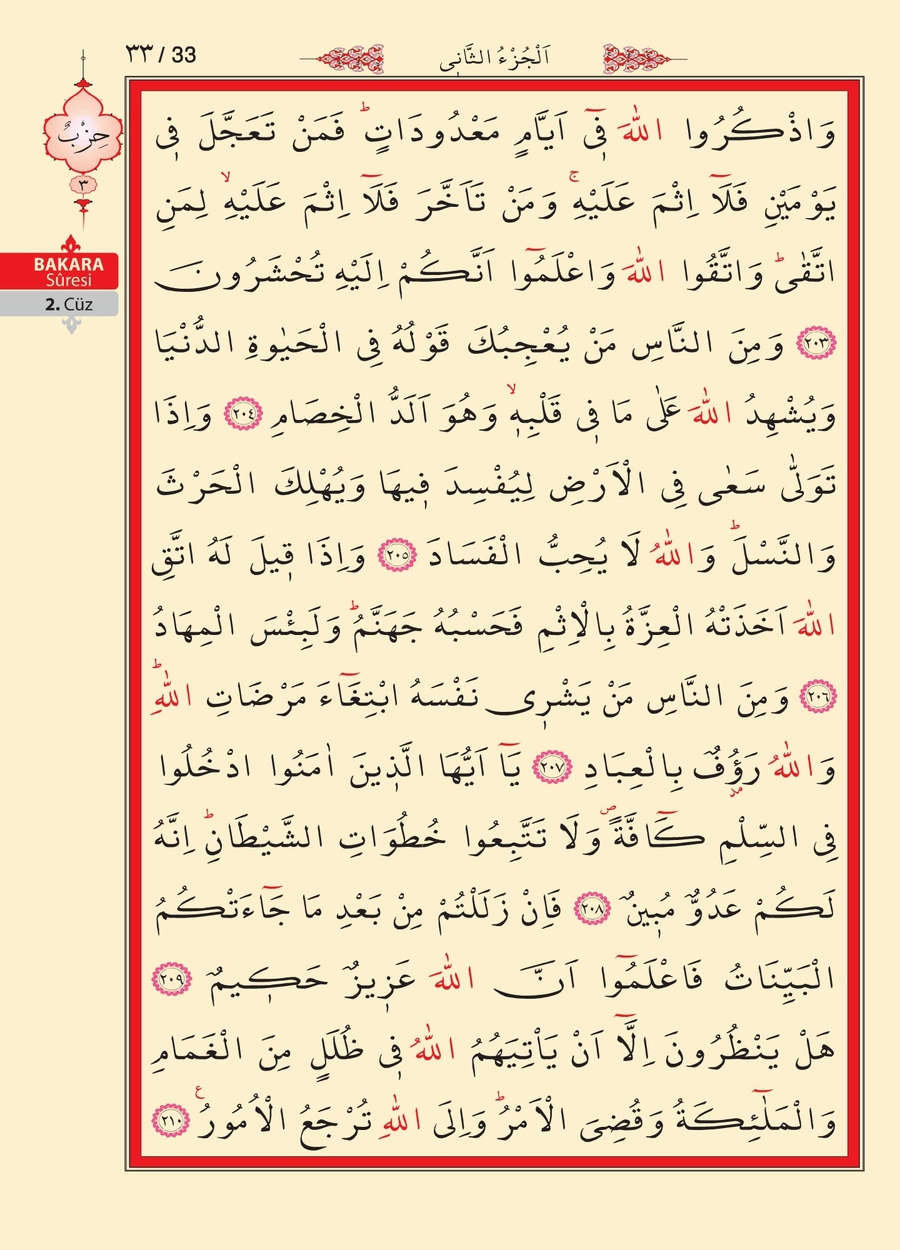 ٣٣ / 33
اَلْجُزْءُ الثَّانٖى
حِزْبٌ
٣
BAKARA
Sûresi
2. Cüz
وَاذْكُرُوا اللّٰهَ فٖٓى اَيَّامٍ مَعْدُودَاتٍؕ فَمَنْ تَعَجَّلَ فٖى
يَوْمَيْنِ فَلَٓا اِثْمَ عَلَيْهِۚ وَمَنْ تَاَخَّرَ فَلَٓا اِثْمَ عَلَيْهِۙ لِمَنِ
اتَّقٰىؕ وَاتَّقُوا اللّٰهَ وَاعْلَمُٓوا اَنَّكُمْ اِلَيْهِ تُحْشَرُونَ
﴿٢٠٣﴾ وَمِنَ النَّاسِ مَنْ يُعْجِبُكَ قَوْلُهُ فِى الْحَيٰوةِ الدُّنْيَا
وَيُشْهِدُ اللّٰهَ عَلٰى مَا فٖى قَلْبِهٖۙ وَهُوَ اَلَدُّ الْخِصَامِ ﴿٢٠٤﴾ وَاِذَا
تَوَلّٰى سَعٰى فِى الْاَرْضِ لِيُفْسِدَ فٖيهَا وَيُهْلِكَ الْحَرْثَ
وَالنَّسْلَؕ وَاللّٰهُ لَا يُحِبُّ الْفَسَادَ ﴿٢٠٥﴾ وَاِذَا قٖيلَ لَهُ اتَّقِ
اللّٰهَ اَخَذَتْهُ الْعِزَّةُ بِالْاِثْمِ فَحَسْبُهُ جَهَنَّمُؕ وَلَبِئْسَ الْمِهَادُ
﴿٢٠٦﴾ وَمِنَ النَّاسِ مَنْ يَشْرٖى نَفْسَهُ ابْتِغَٓاءَ مَرْضَاتِ اللّٰهِؕ
وَاللّٰهُ رَؤُفٌ بِالْعِبَادِ ﴿٢٠٧﴾ يَٓا اَيُّهَا الَّذٖينَ اٰمَنُوا ادْخُلُوا
فِى السِّلْمِ كَٓافَّةًࣕ وَلَا تَتَّبِعُوا خُطُوَاتِ الشَّيْطَانِؕ اِنَّهُ
لَكُمْ عَدُوٌّ مُبٖينٌ ﴿٢٠٨﴾ فَاِنْ زَلَلْتُمْ مِنْ بَعْدِ مَا جَٓاءَتْكُمُ
الْبَيِّنَاتُ فَاعْلَمُٓوا اَنَّ اللّٰهَ عَزٖيزٌ حَكٖيمٌ ﴿٢٠٩﴾
هَلْ يَنْظُرُونَ اِلَّٓا اَنْ يَاْتِيَهُمُ اللّٰهُ فٖى ظُلَلٍ مِنَ الْغَمَامِ
وَالْمَلٰٓئِكَةُ وَقُضِىَ الْاَمْرُؕ وَاِلَى اللّٰهِ تُرْجَعُ الْاُمُورُࣖ ﴿٢١٠﴾